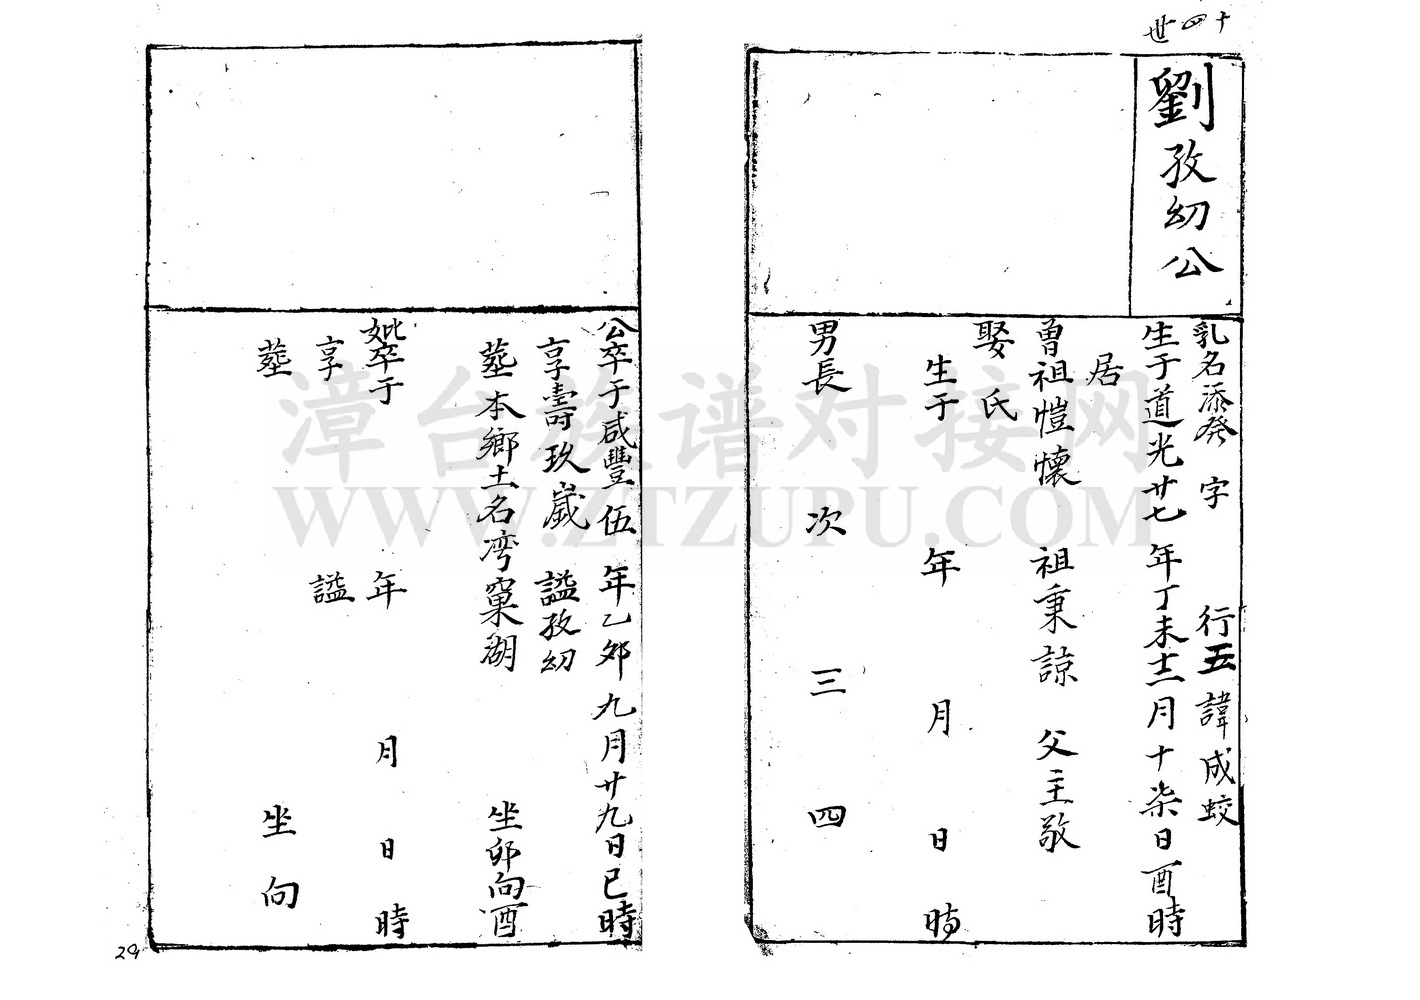 十四世
劉孜幼公
乳名添發 字 行五 諱成蛟
生于道光廿七年丁未十二月十柒日酉時
居
曾祖愷懷 祖秉諒 父主敬
娶 氏
生于 年 月 日 時
男長 次 三 四
公卒于咸豐伍年乙夘九月廿九日巳時
享壽玖歲 謚孜幼
葬本鄉土名湾窠湖 坐卯向酉
妣卒于 年 月 日 時
享 謚
葬 坐 向
29
漳台族谱对接网
WWW.ZTZUPU.COM